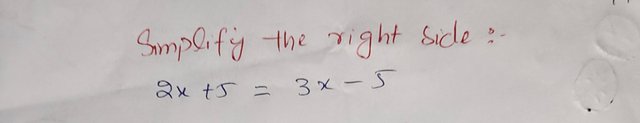 Simplify the right side :-
2x + 5 = 3x - 5